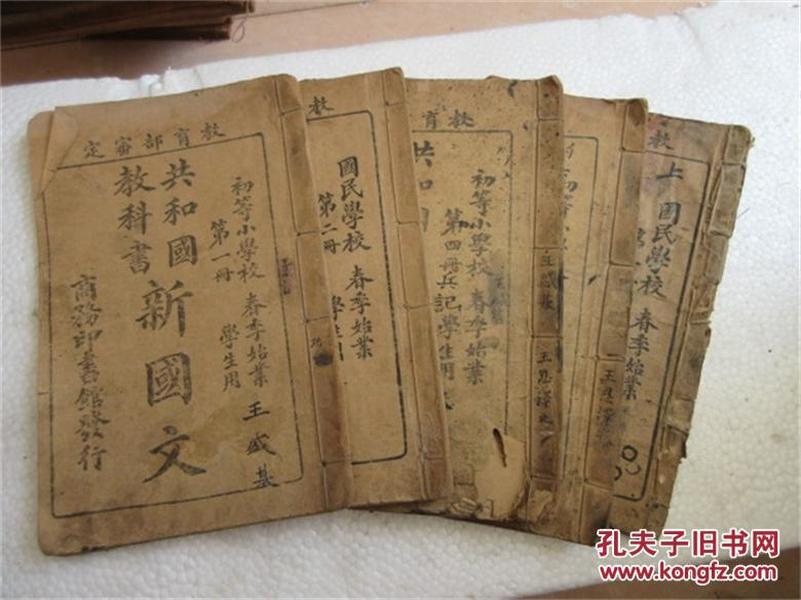 教育部審定
初等小學校 春季始業
第一冊 學生用
共和國
教科書
新國文
商務印書館發行
王盛基
教
國民學校 春季始業
第二冊 學生用
教育
初等小學校 春季始業
第四冊 兵記學生用
共和國
王盛基
初等小
王思譯
教
上
國民學校 春季始業
孔夫子旧书网
www.kongfz.com